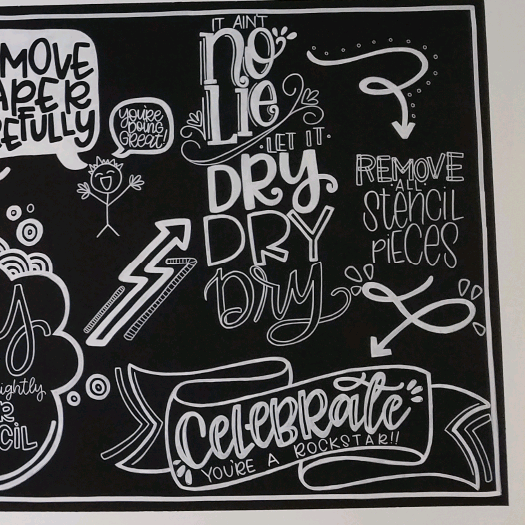 MOVE
APER
EFULLY
you're
DOING
GREAT!
IT AIN'T
No
Lie
LET IT
DRY
DRY
Dry
REMOVE
ALL
StENCiL
piECES
ightly
R
CiL
CELEBRate
YOU'RE A ROCKSTAR!!